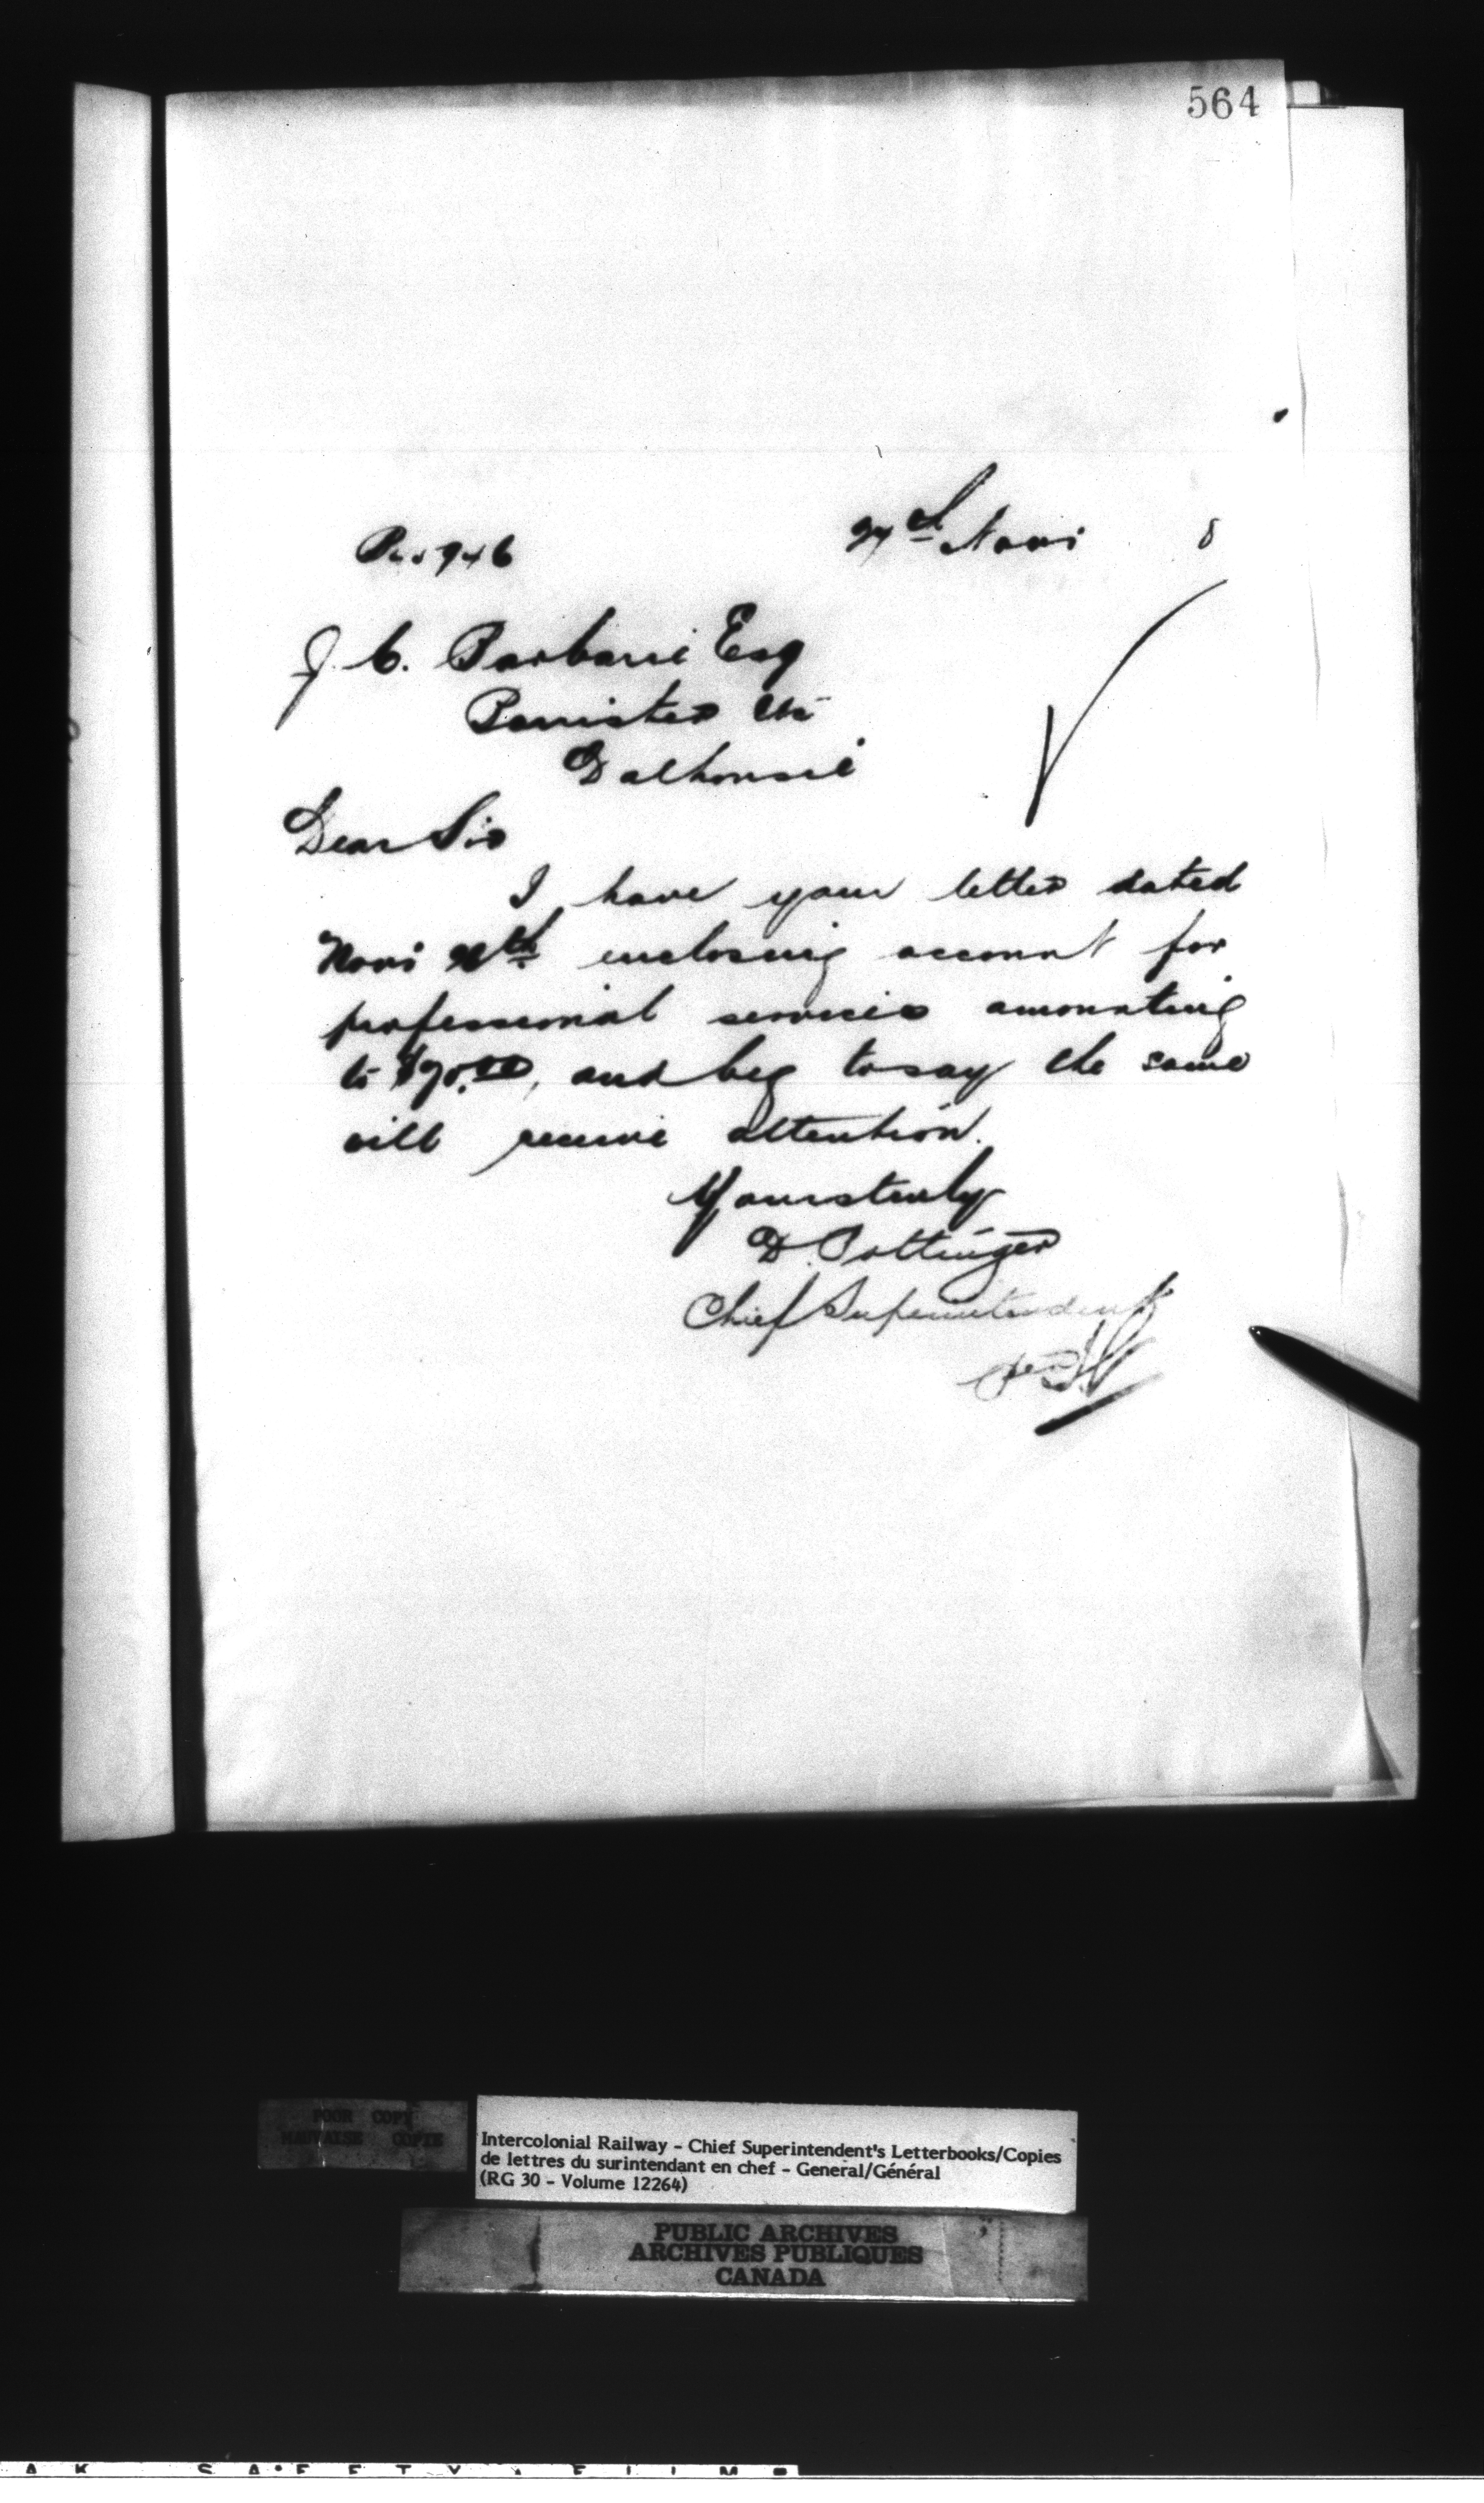 564
27th Novr 8
J. C. Barbarie Esq
Barrister &c
Dalhousie
Dear Sir
I have your letter dated
Novr enclosing account for
professional services amounting
to and beg to say the same
will receive attention.
Yours truly
D. Pottinger
Chief Superintendent
POOR COPY
MAUVAISE COPIE
Intercolonial Railway - Chief Superintendent's Letterbooks/Copies
de lettres du surintendant en chef - General/Général
(RG 30 - Volume 12264)
PUBLIC ARCHIVES
ARCHIVES PUBLIQUES
CANADA
AK SAFETY FILM